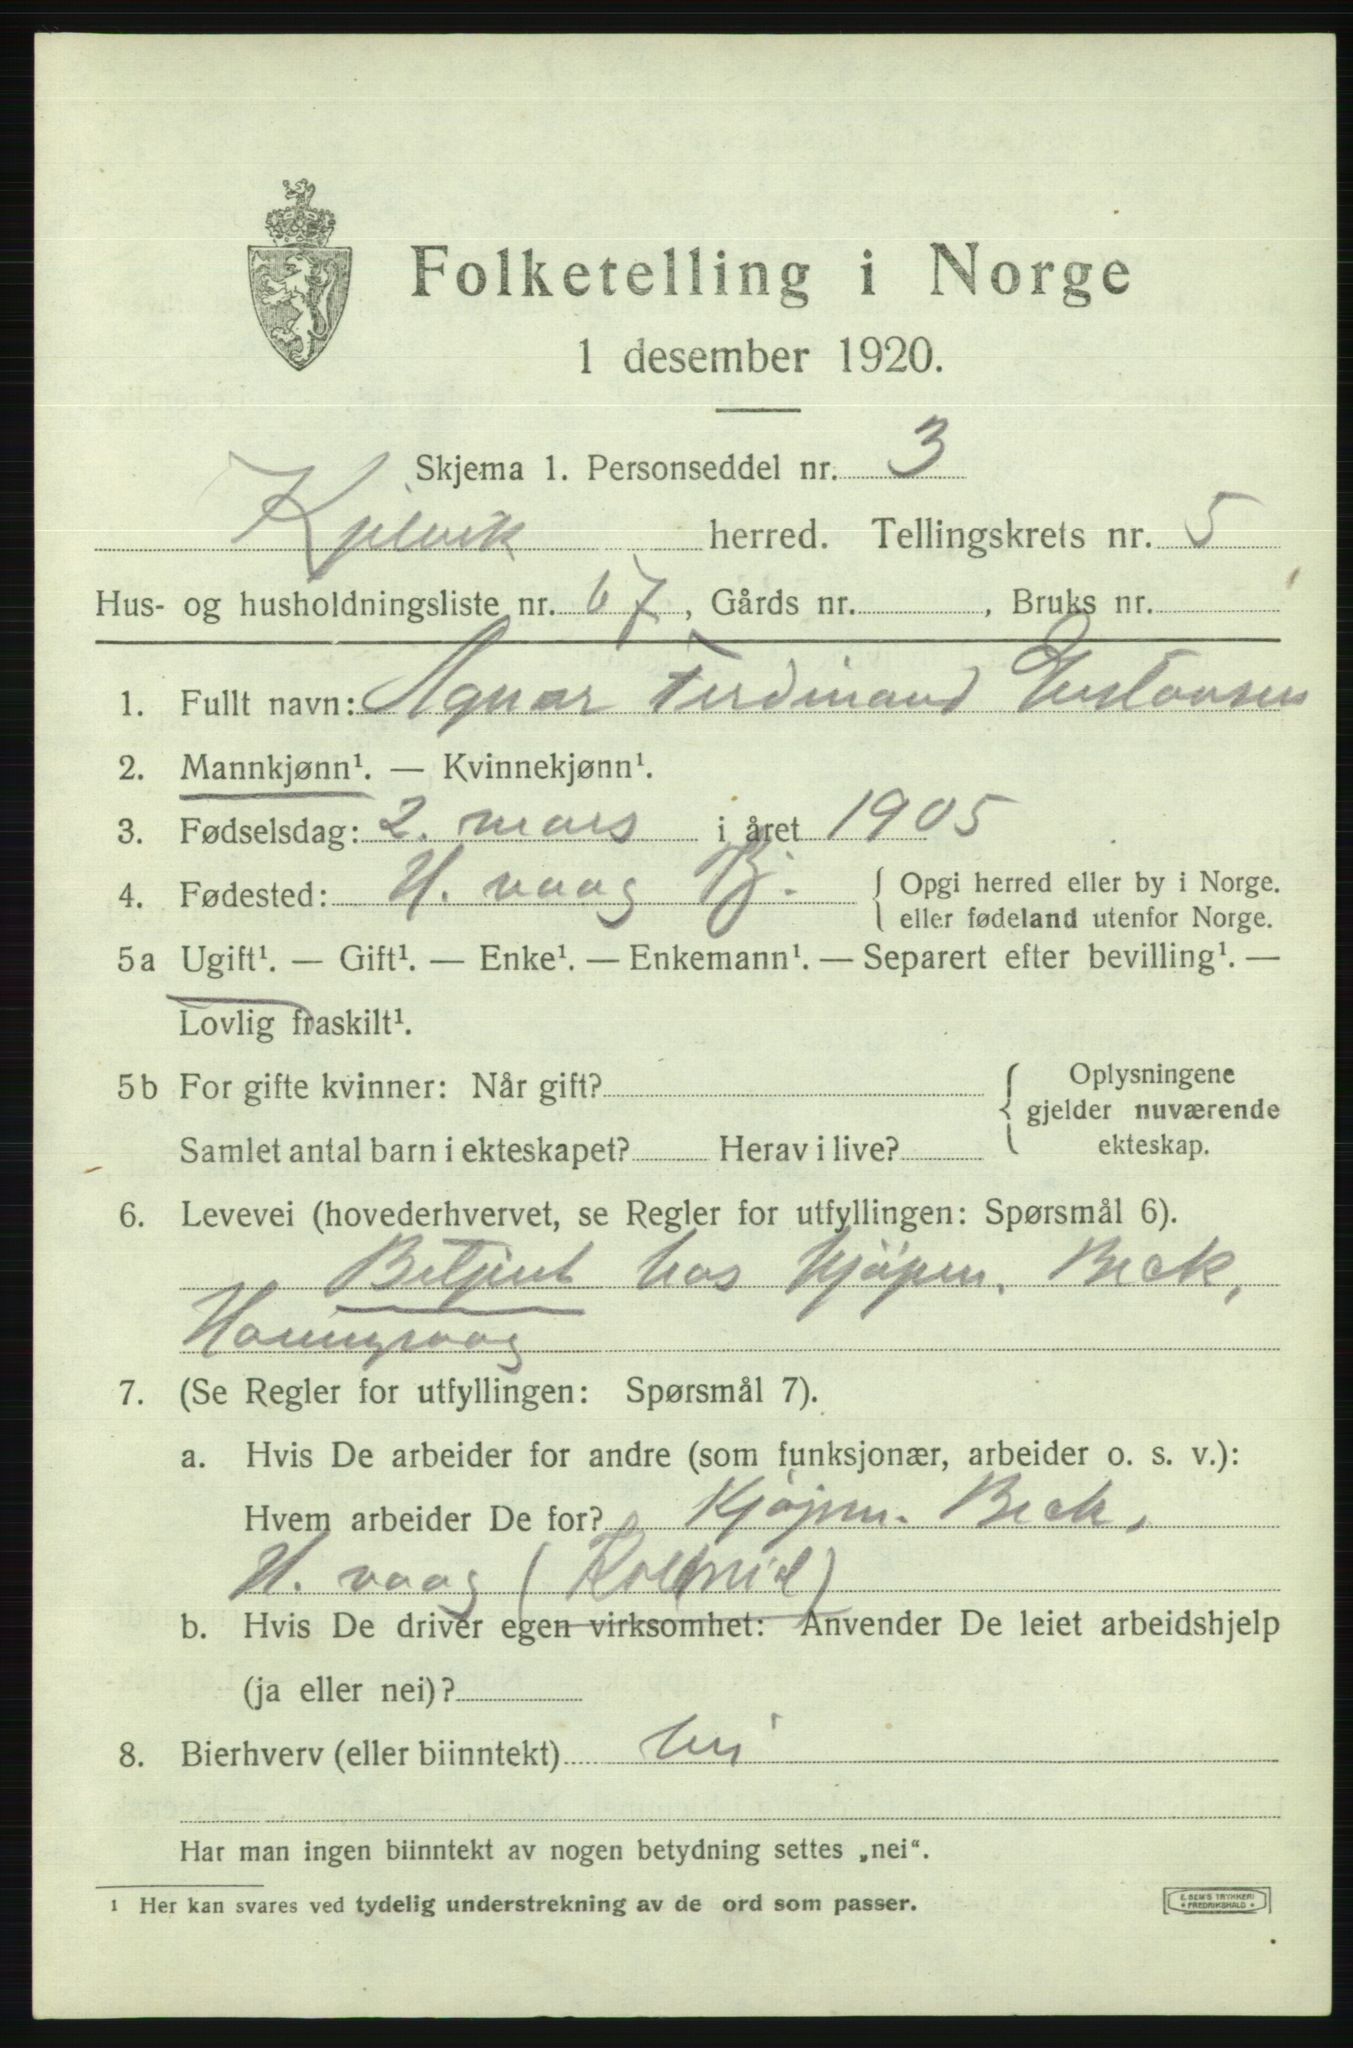 Folketelling i Norge
1 desember 1920.
Skjema 1. Personseddel nr. 3
Kjelvik herred. Tellingskrets nr. 5
Hus- og husholdningsliste nr. 67, Gårds nr. , Bruks nr.
1. Fullt navn: Agnar Ferdinand Gustavsen
2. Mannkjønn¹. — Kvinnekjønn¹.
3. Fødselsdag: 2. mars i året 1905
4. Fødested: H. vaag Kj. { Opgi herred eller by i Norge.
eller fødeland utenfor Norge.
5a Ugift¹. — Gift¹. — Enke¹. — Enkemann¹. — Separert efter bevilling¹. —
Lovlig fraskilt¹.
5b For gifte kvinner: Når gift? { Oplysningene
gjelder nuværende
Samlet antal barn i ekteskapet? Herav i live? ekteskap.
6. Levevei (hovederhvervet, se Regler for utfyllingen: Spørsmål 6).
Betjent hos Kjøpm. Beck,
Honningvaag
7. (Se Regler for utfyllingen: Spørsmål 7).
a. Hvis De arbeider for andre (som funksjonær, arbeider o. s. v.):
Hvem arbeider De for? Kjøpm. Beck,
H. vaag (
b. Hvis De driver egen virksomhet: Anvender De leiet arbeidshjelp
(ja eller nei)?
8. Bierhverv (eller biinntekt) nei
Har man ingen biinntekt av nogen betydning settes „nei“.
¹ Her kan svares ved tydelig understrekning av de ord som passer.
E. SEM'S TRYKKERI
* FREDRIKSHALD *